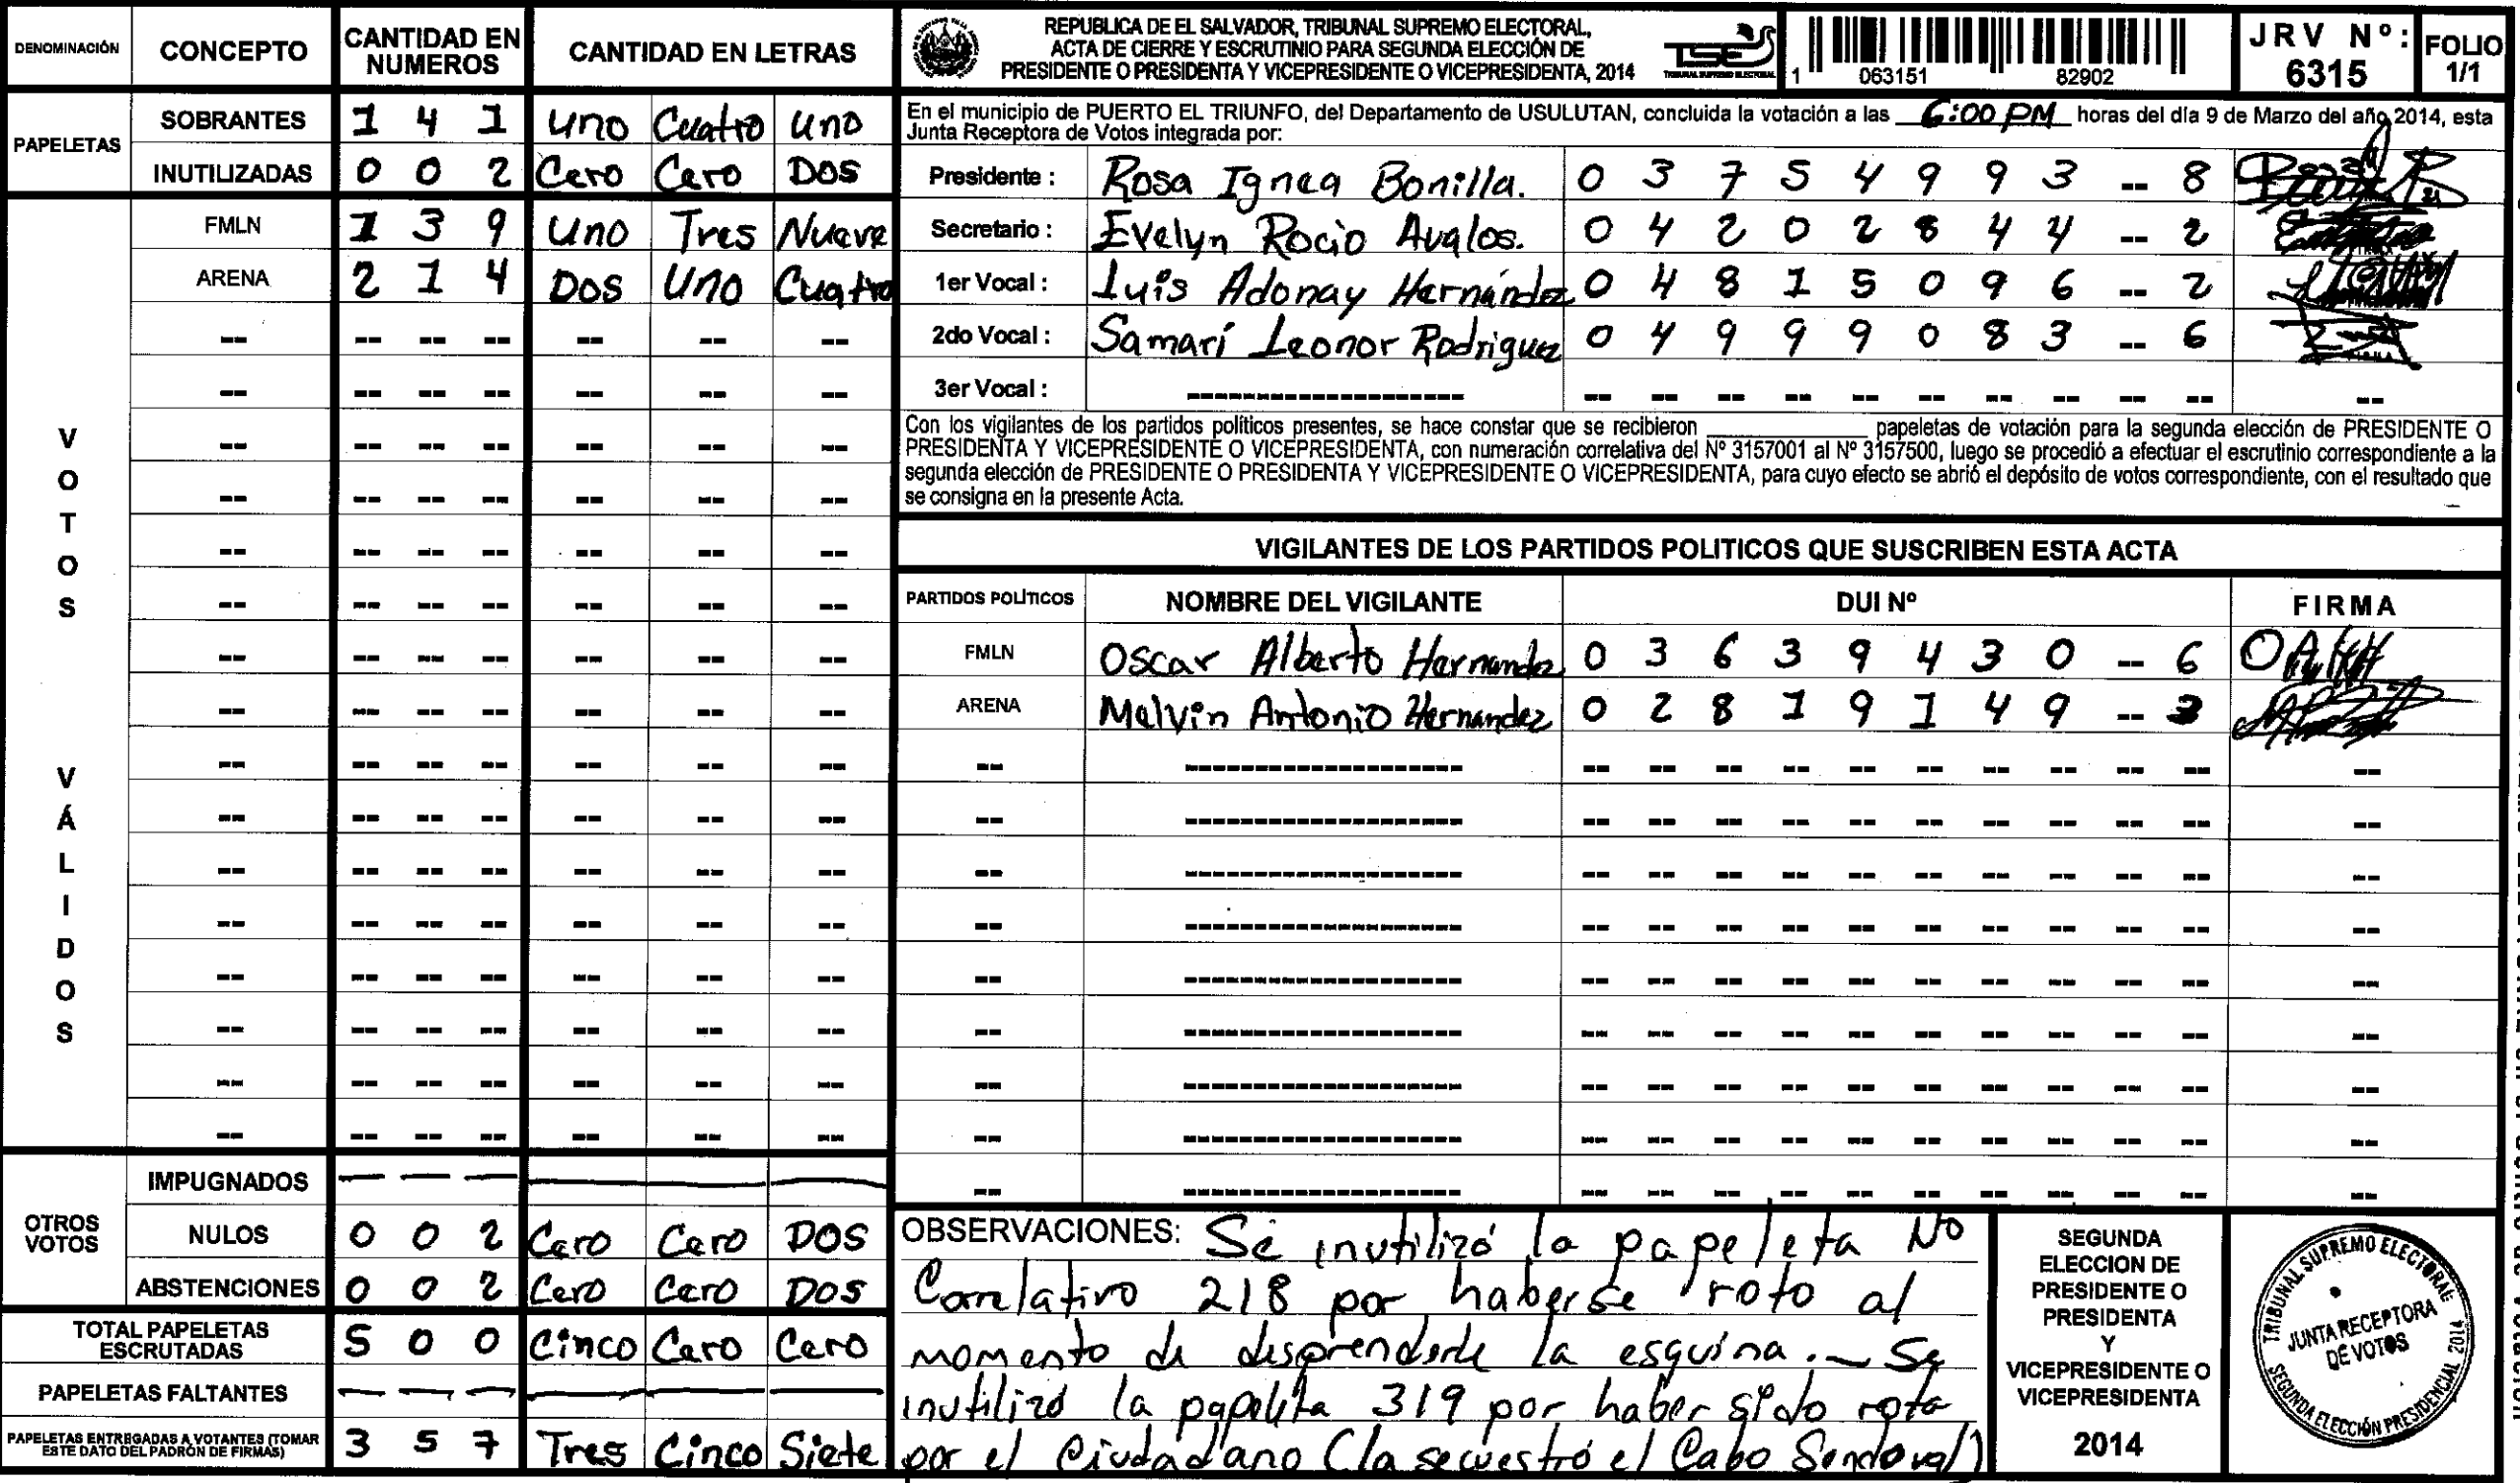 DENOMINACIÓN CONCEPTO CANTIDAD EN NUMEROS CANTIDAD EN LETRAS
PAPELETAS
SOBRANTES 1 4 1 Uno Cuatro Uno
INUTILIZADAS 0 0 2 Cero Cero Dos
VOTOS VÁLIDOS
FMLN 1 3 9 Uno Tres Nueve
ARENA 2 1 4 Dos Uno Cuatro
OTROS VOTOS
IMPUGNADOS — — —
NULOS 0 0 2 Cero Cero Dos
ABSTENCIONES 0 0 2 Cero Cero Dos
TOTAL PAPELETAS ESCRUTADAS 5 0 0 Cinco Cero Cero
PAPELETAS FALTANTES — — —
PAPELETAS ENTREGADAS A VOTANTES (TOMAR ESTE DATO DEL PADRÓN DE FIRMAS) 3 5 7 Tres Cinco Siete
REPUBLICA DE EL SALVADOR, TRIBUNAL SUPREMO ELECTORAL,
ACTA DE CIERRE Y ESCRUTINIO PARA SEGUNDA ELECCIÓN DE
PRESIDENTE O PRESIDENTA Y VICEPRESIDENTE O VICEPRESIDENTA, 2014
TSE
TRIBUNAL SUPREMO ELECTORAL
1 063151 82902
JRV Nº: 6315
FOLIO 1/1
En el municipio de PUERTO EL TRIUNFO, del Departamento de USULUTAN, concluida la votación a las 6:00 PM horas del día 9 de Marzo del año 2014, esta
Junta Receptora de Votos integrada por:
Presidente : Rosa Ignea Bonilla. 0 3 7 5 4 9 9 3 -- 8
Secretario : Evelyn Rocio Avalos. 0 4 2 0 2 8 4 4 -- 2
1er Vocal : Luis Adonay Hernández 0 4 8 1 5 0 9 6 -- 2
2do Vocal : Samarí Leonor Rodriguez 0 4 9 9 9 0 8 3 -- 6
3er Vocal :
Con los vigilantes de los partidos políticos presentes, se hace constar que se recibieron ____ papeletas de votación para la segunda elección de PRESIDENTE O
PRESIDENTA Y VICEPRESIDENTE O VICEPRESIDENTA, con numeración correlativa del Nº 3157001 al Nº 3157500, luego se procedió a efectuar el escrutinio correspondiente a la
segunda elección de PRESIDENTE O PRESIDENTA Y VICEPRESIDENTE O VICEPRESIDENTA, para cuyo efecto se abrió el depósito de votos correspondiente, con el resultado que
se consigna en la presente Acta.
VIGILANTES DE LOS PARTIDOS POLITICOS QUE SUSCRIBEN ESTA ACTA
PARTIDOS POLÍTICOS NOMBRE DEL VIGILANTE DUI Nº FIRMA
FMLN Oscar Alberto Hernandz 0 3 6 3 9 4 3 0 -- 6
ARENA Melvin Antonio Hernandez 0 2 8 1 9 1 4 9 --
OBSERVACIONES: Se inutilizó la papeleta No
Correlativo 218 por haberse roto al
momento de desprenderle la esquina. – Se
inutilizó la papeleta 319 por haber sido rota
por el Ciudadano (la secuestró el Cabo Sandoval)
SEGUNDA
ELECCION DE
PRESIDENTE O
PRESIDENTA
Y
VICEPRESIDENTE O
VICEPRESIDENTA
2014
TRIBUNAL SUPREMO ELECTORAL
JUNTA RECEPTORA
DE VOTOS
SEGUNDA ELECCIÓN PRESIDENCIAL 2014